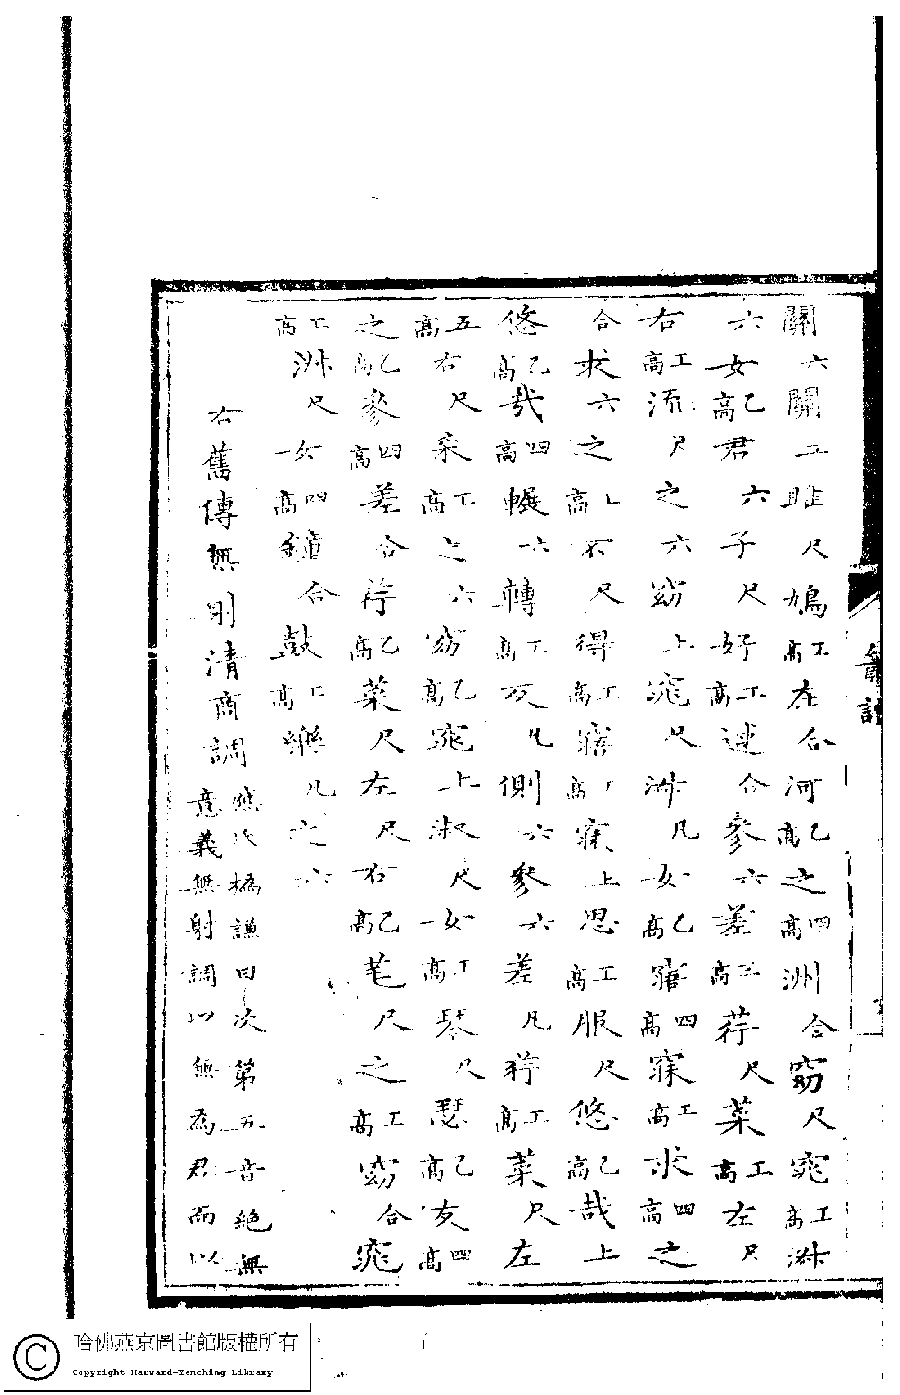 關六關工雎尺鳩高工在合河高乙之高四洲合窈尺窕高工淑
六女高乙君六子尺好高工逑合參六差高工荇尺菜高工左尺
右高工流尺之六窈上窕尺淑凡女高乙寤高四寐高工求高四之
合求六之高上不尺得高工寤高工寐上思高工服尺悠高乙哉上
悠高乙哉高四輾六轉高工反凡側六參六差凡荇高工菜尺左
高五右尺采高工之六窈高乙窕上淑尺女高工琴尺瑟高乙友高四
之高乙參高四差合荇高乙菜尺左尺右高乙芼尺之高工窈合窕
高工淑尺女高四鐘合鼓高工樂凡之六
右舊傳無則清商調
謙曰次第五音絕無
意義無射調以無為君而以
哈佛燕京圖書館版權所有
Copyright Harvard-Yenching Library